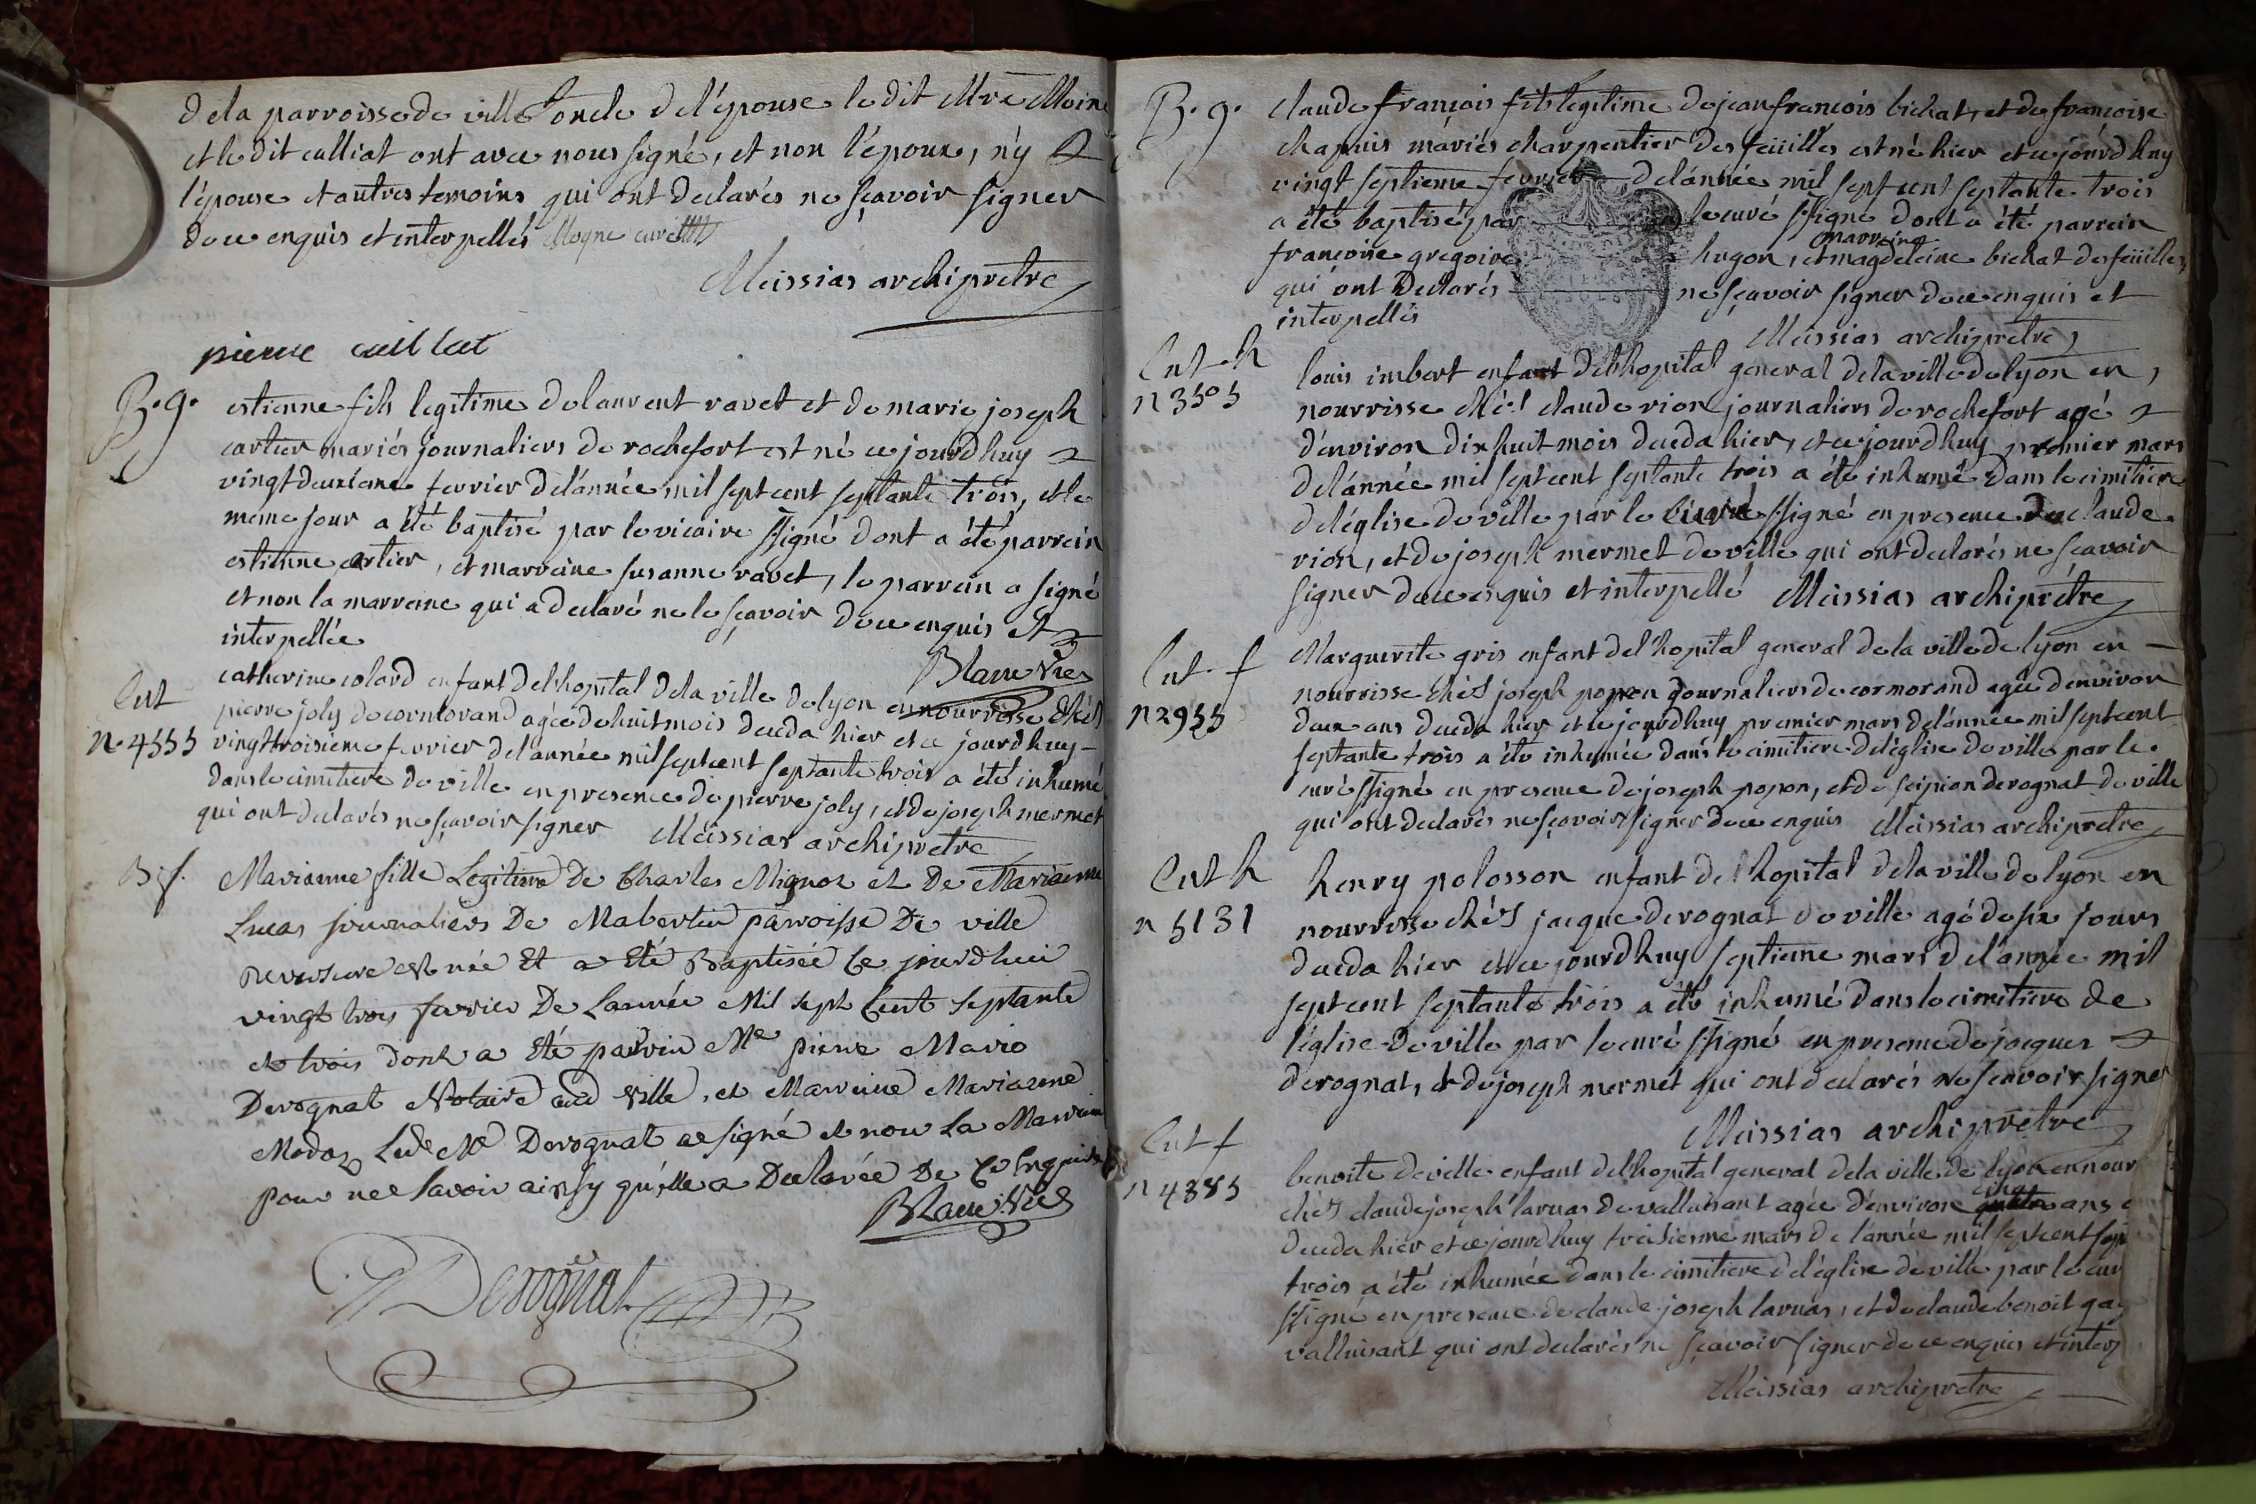 dela parroisse de ville l'oncle del'épouse le dit Mre Moine
et le dit culliat ont avec nous signé, et non l'époux, n'y
l'épouse et autres temoins qui ont declarés ne sçavoir signer
de ce enquis et interpellés Mogne curé
Meissias archiprêtre
pierre cuillat
B. g. estienne fils legitime de laurent ravet et de marie joseph
cartier mariés journaliers de rochefort est né ce jourdhuy
vingt deuxieme fevrier del'année mil sept cent septante trois, et le
meme jour a été baptisé par le vicaire ssigné dont a été parrein
estienne cartier, et marreine susanne ravet, le parrein a signé
et non la marreine qui a declaré ne le sçavoir de ce enquis et
interpellée
Blanc Vic
Ent catherine colard enfant del'hopital dela ville de lyon en nourrisse chés
pierre joly de cormorand agée de huit mois deceda hier et ce jourdhuy
n. 4555 vingt troisieme fevrier del'année mil sept cent septante trois a été inhumé
dans le cimitiere de ville en presence de pierre joly, et de joseph mermet
qui ont declarés ne sçavoir signer Meissias archiprêtre
B. f. Marianne fille Legitime De Charles Mignot et De Marianne
Lucas journaliers De Mabertin parroisse De ville
Reversure est née Et a Eté Baptisée Ce jourdhui
vingt trois fevrier De Lannée Mil sept Cent septante
et trois dont a Eté parrein Me pierre Marie
Derognat Notaire aud ville, et Marreine Marianne
Modaz Led Me Derognat a signé et non La Marreine
pour ne Savoir ainsy qu'elle a Declarée De Ce Enquise
Blanc Vic
Derognat
B. g. Claude françois fils legitime de jean francois bichat, et de francoise
chapuis mariés charpentier des feüilles est né hier et ce jourdhuy
vingt septieme fevrier del'année mil sept cent septante trois
a été baptisé par le curé ssigné dont a été parrein
francoise gregoire hugon, et marreine magdeleine bichat des feüilles
qui ont declarés ne sçavoir signer de ce enquis et
interpellés
Meissias archiprêtre
Ent. h louis imbert enfant del'hopital general dela ville de lyon en
n 3505 nourrisse chés claude rion journaliers de rochefort agé
d'environ dix huit mois deceda hier, et ce jourdhuy premier mars
del'année mil sept cent septante trois a été inhumé dans le cimitiere
del'église de ville par le curé ssigné en presence de claude
rion, et de joseph mermet de ville qui ont declarés ne scavoir
signer de ce enquis et interpellé Meissias archiprêtre
Ent. f Marguerite gris enfant del'hopital general dela ville de lyon en
nourrisse chés joseph popon journaliers de cormorand agée denviron
n 2955 deux ans deceda hier et ce jourdhuy premier mars del'année mil sept cent
septante trois a été inhumée dans le cimitiere del'église de ville par le
curé ssigné en presence de joseph popon, et de scipion derognat de ville
qui ont declarés ne sçavoir signer de ce enquis Meissias archiprêtre
Ent h henry polosson enfant de l'hopital dela ville de lyon en
n 5131 nourrisse chés jacque derognat de ville agé de six jours
deceda hier et ce jourdhuy septieme mars del'année mil
sept cent septante trois a été inhumé dans le cimitiere de
l'église de ville par le curé ssigné en presence de jacques
derognat, et de joseph mermet qui ont declarés ne scavoir signer
Meissias archiprêtre
Ent f benoite deville enfant del'hopital general dela ville de lyon en nour
n 4885 chés claude joseph laruas de valluisant agée d'environ cinq ans
deceda hier et ce jourdhuy treisieme mars de l'année mil sept cent sep
trois a été inhumée dans le cimitiere del'église de ville par le cur
ssigné en presence de claude joseph laruas, et de claude benoit gay
valluisant qui ont declarés ne sçavoir signer de ce enquis et interp
Meissias archiprêtre